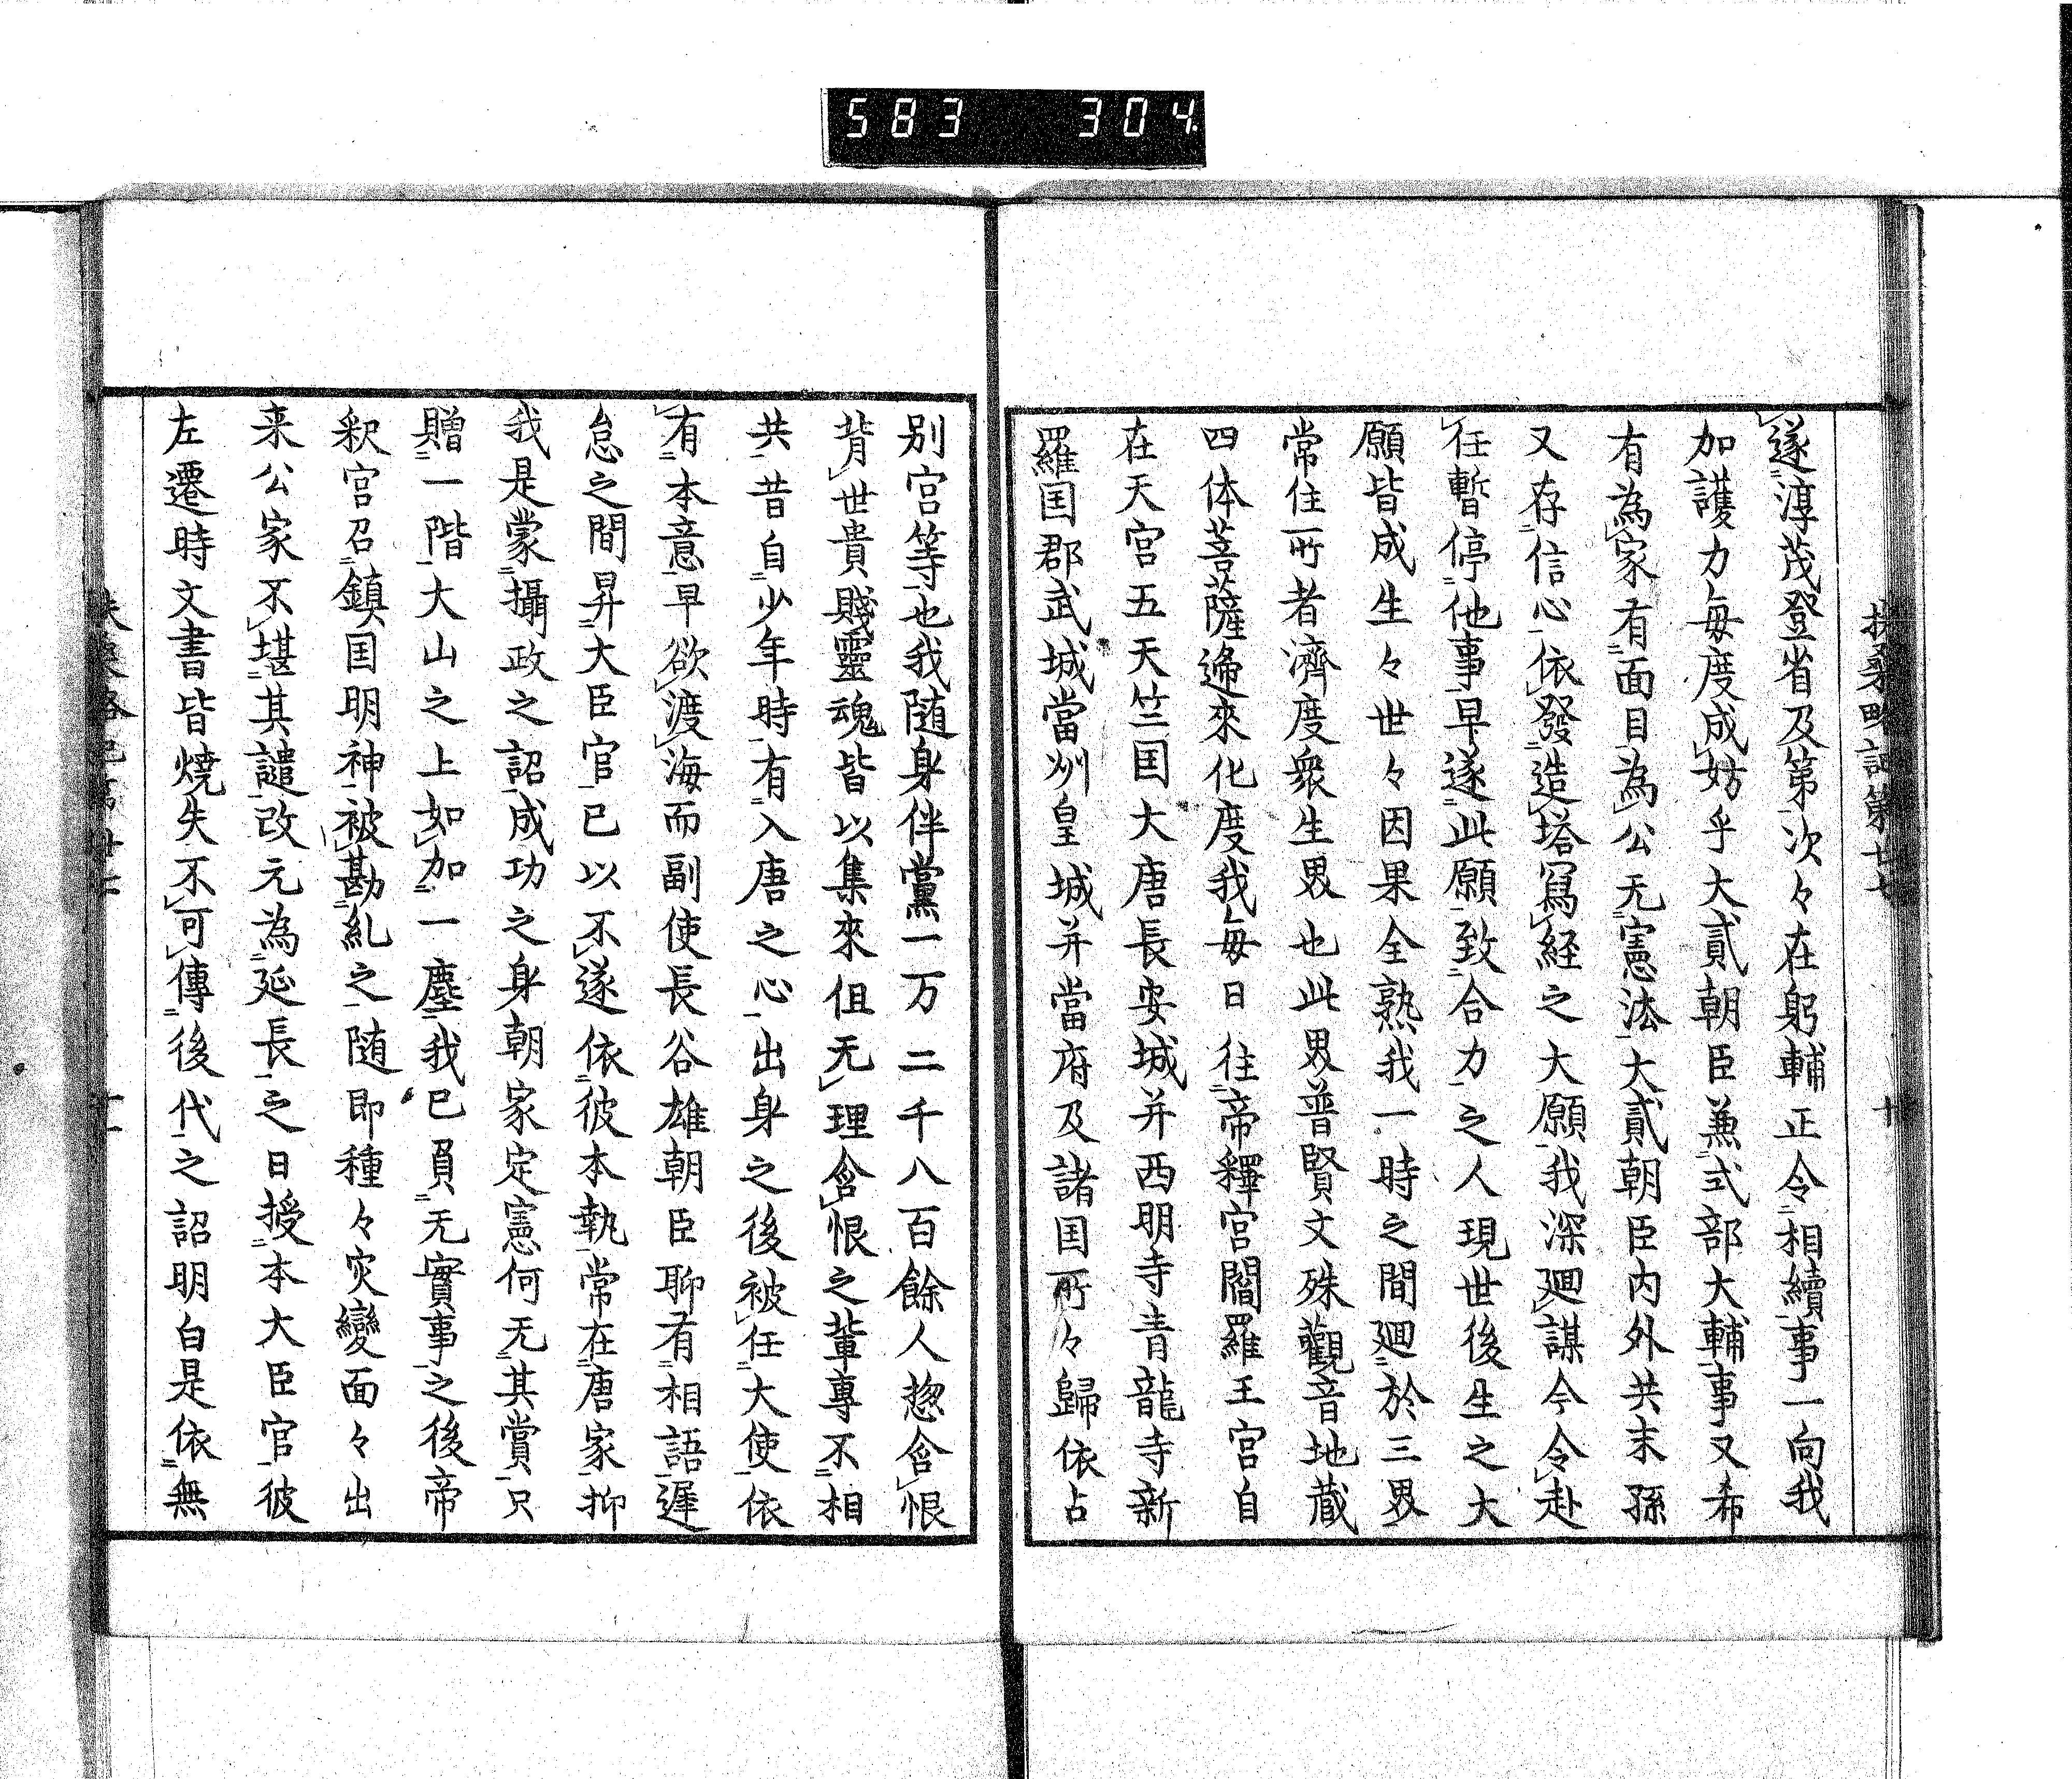 583 304
扶桑略記第廿七 十
遂淳茂登省及第次々在躬輔正令相續事一向我
加護力毎度成妨乎大貳朝臣兼式部大輔事又希
有為家有面目為公无憲法大貳朝臣内外共末孫
又存信心依發造塔寫経之大願我深廻謀今令赴
任暫停他事早遂此願致合力之人現世後生之大
願皆成生々世々因果全熟我一時之間廻於三界
常住所者濟度衆生界也此界普賢文殊觀音地蔵
四体菩薩遞來化度我毎日往帝釋宮閻羅王宮自
在天宮五天竺国大唐長安城并西明寺青龍寺新
羅国郡武城當州皇城并當府及諸国所々歸依占
別宮等也我随身伴黨一万二千八百餘人惣含恨
背世貴賤靈魂皆以集來但无理含恨之輩専不相
共昔自少年時有入唐之心出身之後被任大使依
有本意早欲渡海而副使長谷雄朝臣聊有相語遅
怠之間昇大臣官已以不遂依彼本執常在唐家抑
我是蒙攝政之詔成功之身朝家定憲何无其賞只
贈一階大山之上如加一塵我已負无實事之後帝
釈宮召鎮国明神被勘糺之随即種々灾變面々出
来公家不堪其譴改元為延長之日授本大臣官彼
左遷時文書皆燒失不可傳後代之詔明白是依無
扶桑略記第廿七 十一